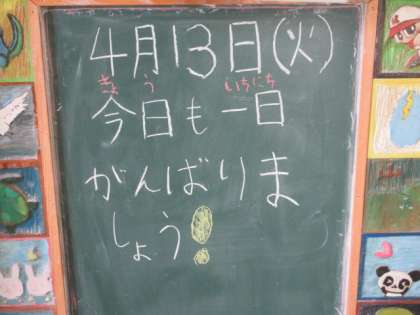 4月13日(火)
きょう いちにち
今日も一日
がんばりま
しょう!